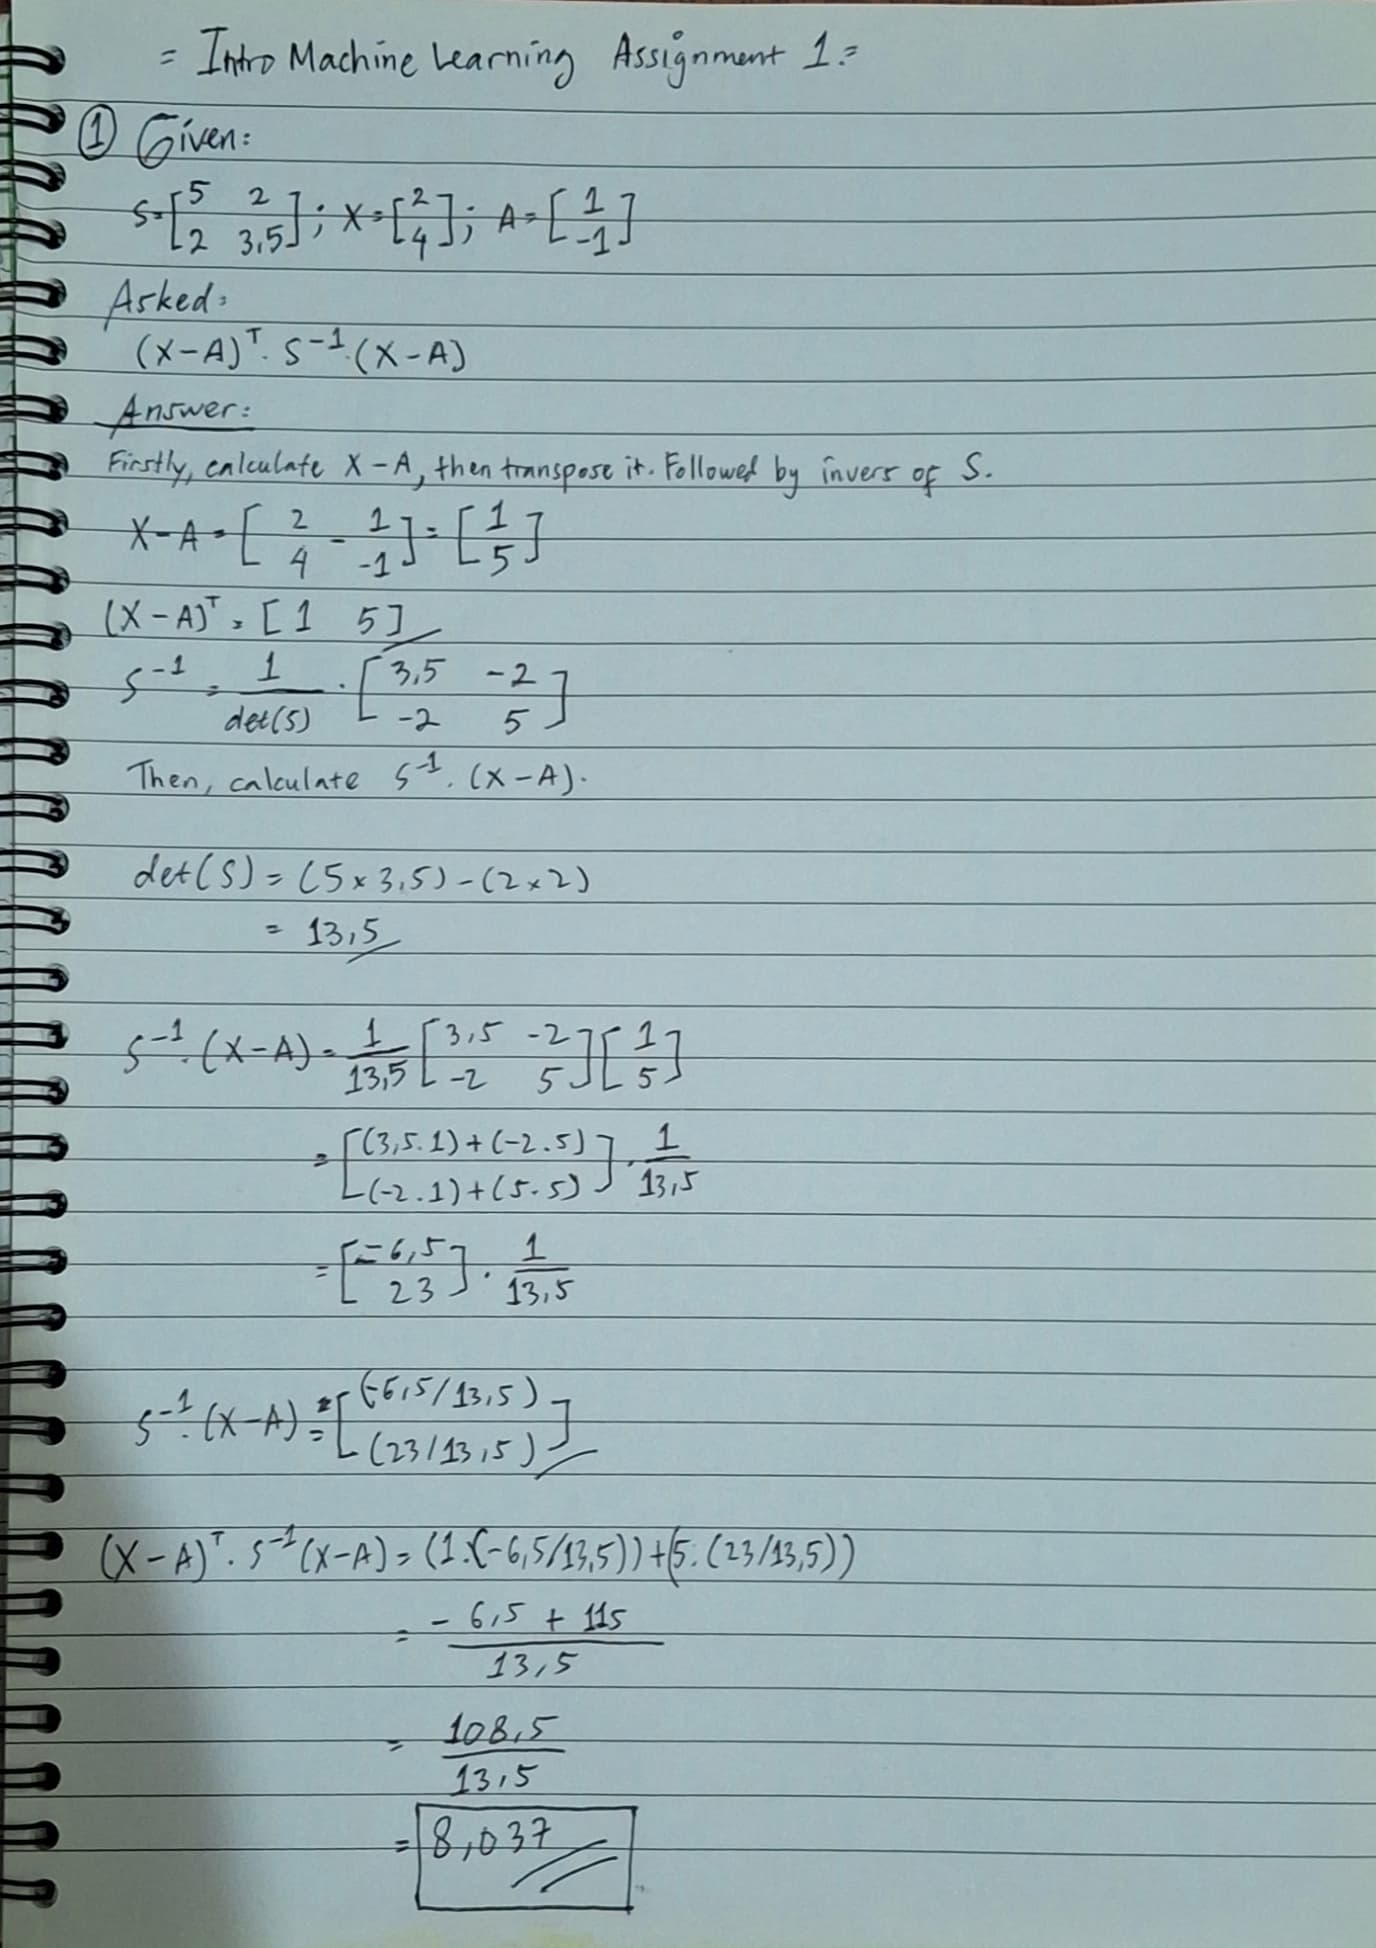 = Intro Machine Learning Assignment 1.=
① Given:
S=[5 2; 2 3,5]; X=[2; 4]; A=[1; -1]
Asked:
(X-A)ᵀ. S⁻¹.(X-A)
Answer:
Firstly, calculate X-A, then transpose it. Followed by invers of S.
X-A=[2; 4 - 1; -1]=[1; 5]
(X-A)ᵀ=[1 5]
S⁻¹ = 1/det(S) . [3,5 -2; -2 5]
Then, calculate S⁻¹.(X-A).
det(S)=(5×3,5)-(2×2)
= 13,5
S⁻¹.(X-A)= 1/13,5 [3,5 -2; -2 5][1; 5]
= [(3,5.1)+(-2.5); (-2.1)+(5.5)] . 1/13,5
= [-6,5; 23] . 1/13,5
S⁻¹.(X-A) = [(-6,5/13,5); (23/13,5)]
(X-A)ᵀ. S⁻¹(X-A)=(1.(-6,5/13,5))+(5.(23/13,5))
= (-6,5 + 115)/13,5
= 108,5/13,5
= 8,037